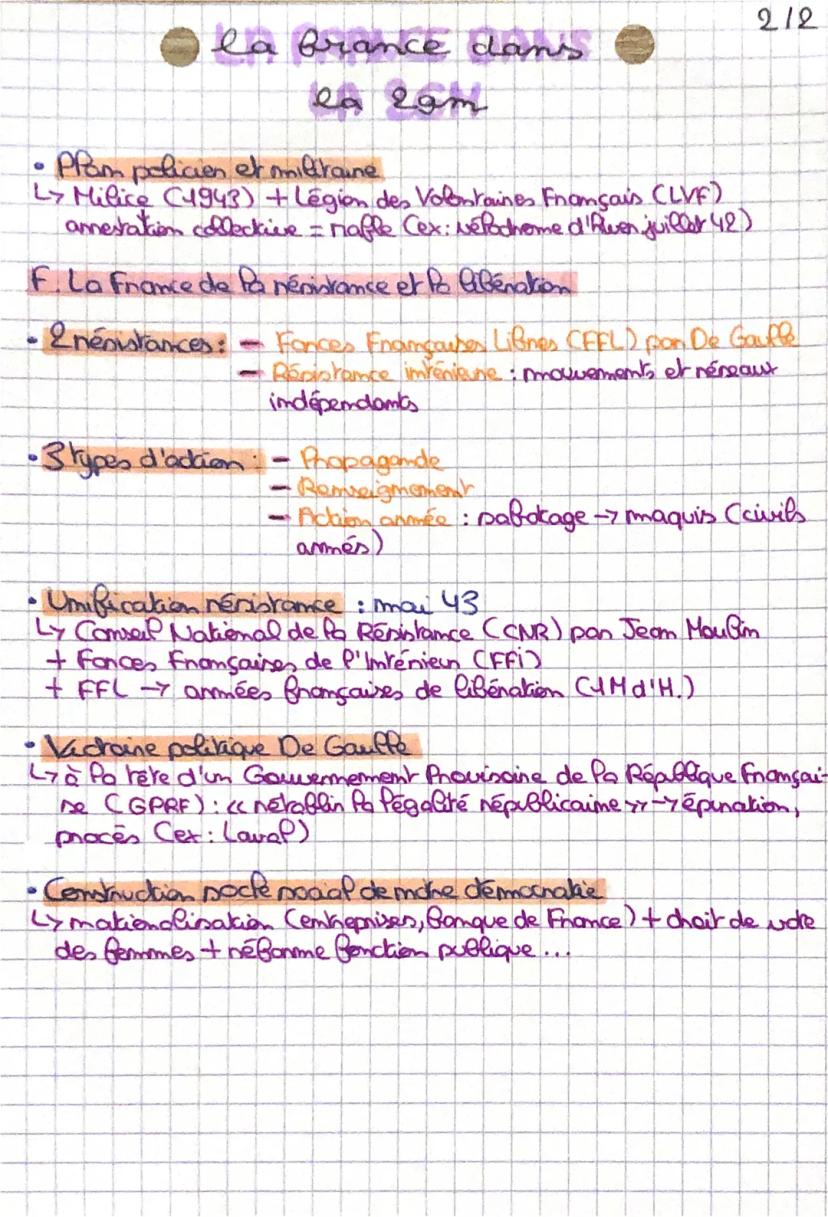 2/2
la france dans
la 2gm
• Plan policier et militaire
↳ Milice (1943) + Légion des Volontaires Français (LVF)
arrestation collective = rafle (ex: vélodrome d'hiver juillet 42)
F. La France de la résistance et la libération
• 2 résistances : – Forces Françaises Libres (FFL) par De Gaulle
– Résistance intérieure : mouvements et réseaux
indépendants
• 3 types d'action : – Propagande
– Renseignement
– Action armée : sabotage → maquis (civils
armés)
• Unification résistance : mai 43
↳ Conseil National de la Résistance (CNR) par Jean Moulin
+ Forces Françaises de l'Intérieur (FFi)
+ FFL → armées françaises de libération (1M d'H.)
• Victoire politique De Gaulle
↳ à la tête d'un Gouvernement Provisoire de la République Françai-
se (GPRF) : « rétablir la légalité républicaine » → épuration,
procès (ex: Laval)
• Construction socle social de notre démocratie
↳ nationalisation (entreprises, Banque de France) + droit de vote
des femmes + réforme fonction publique ...